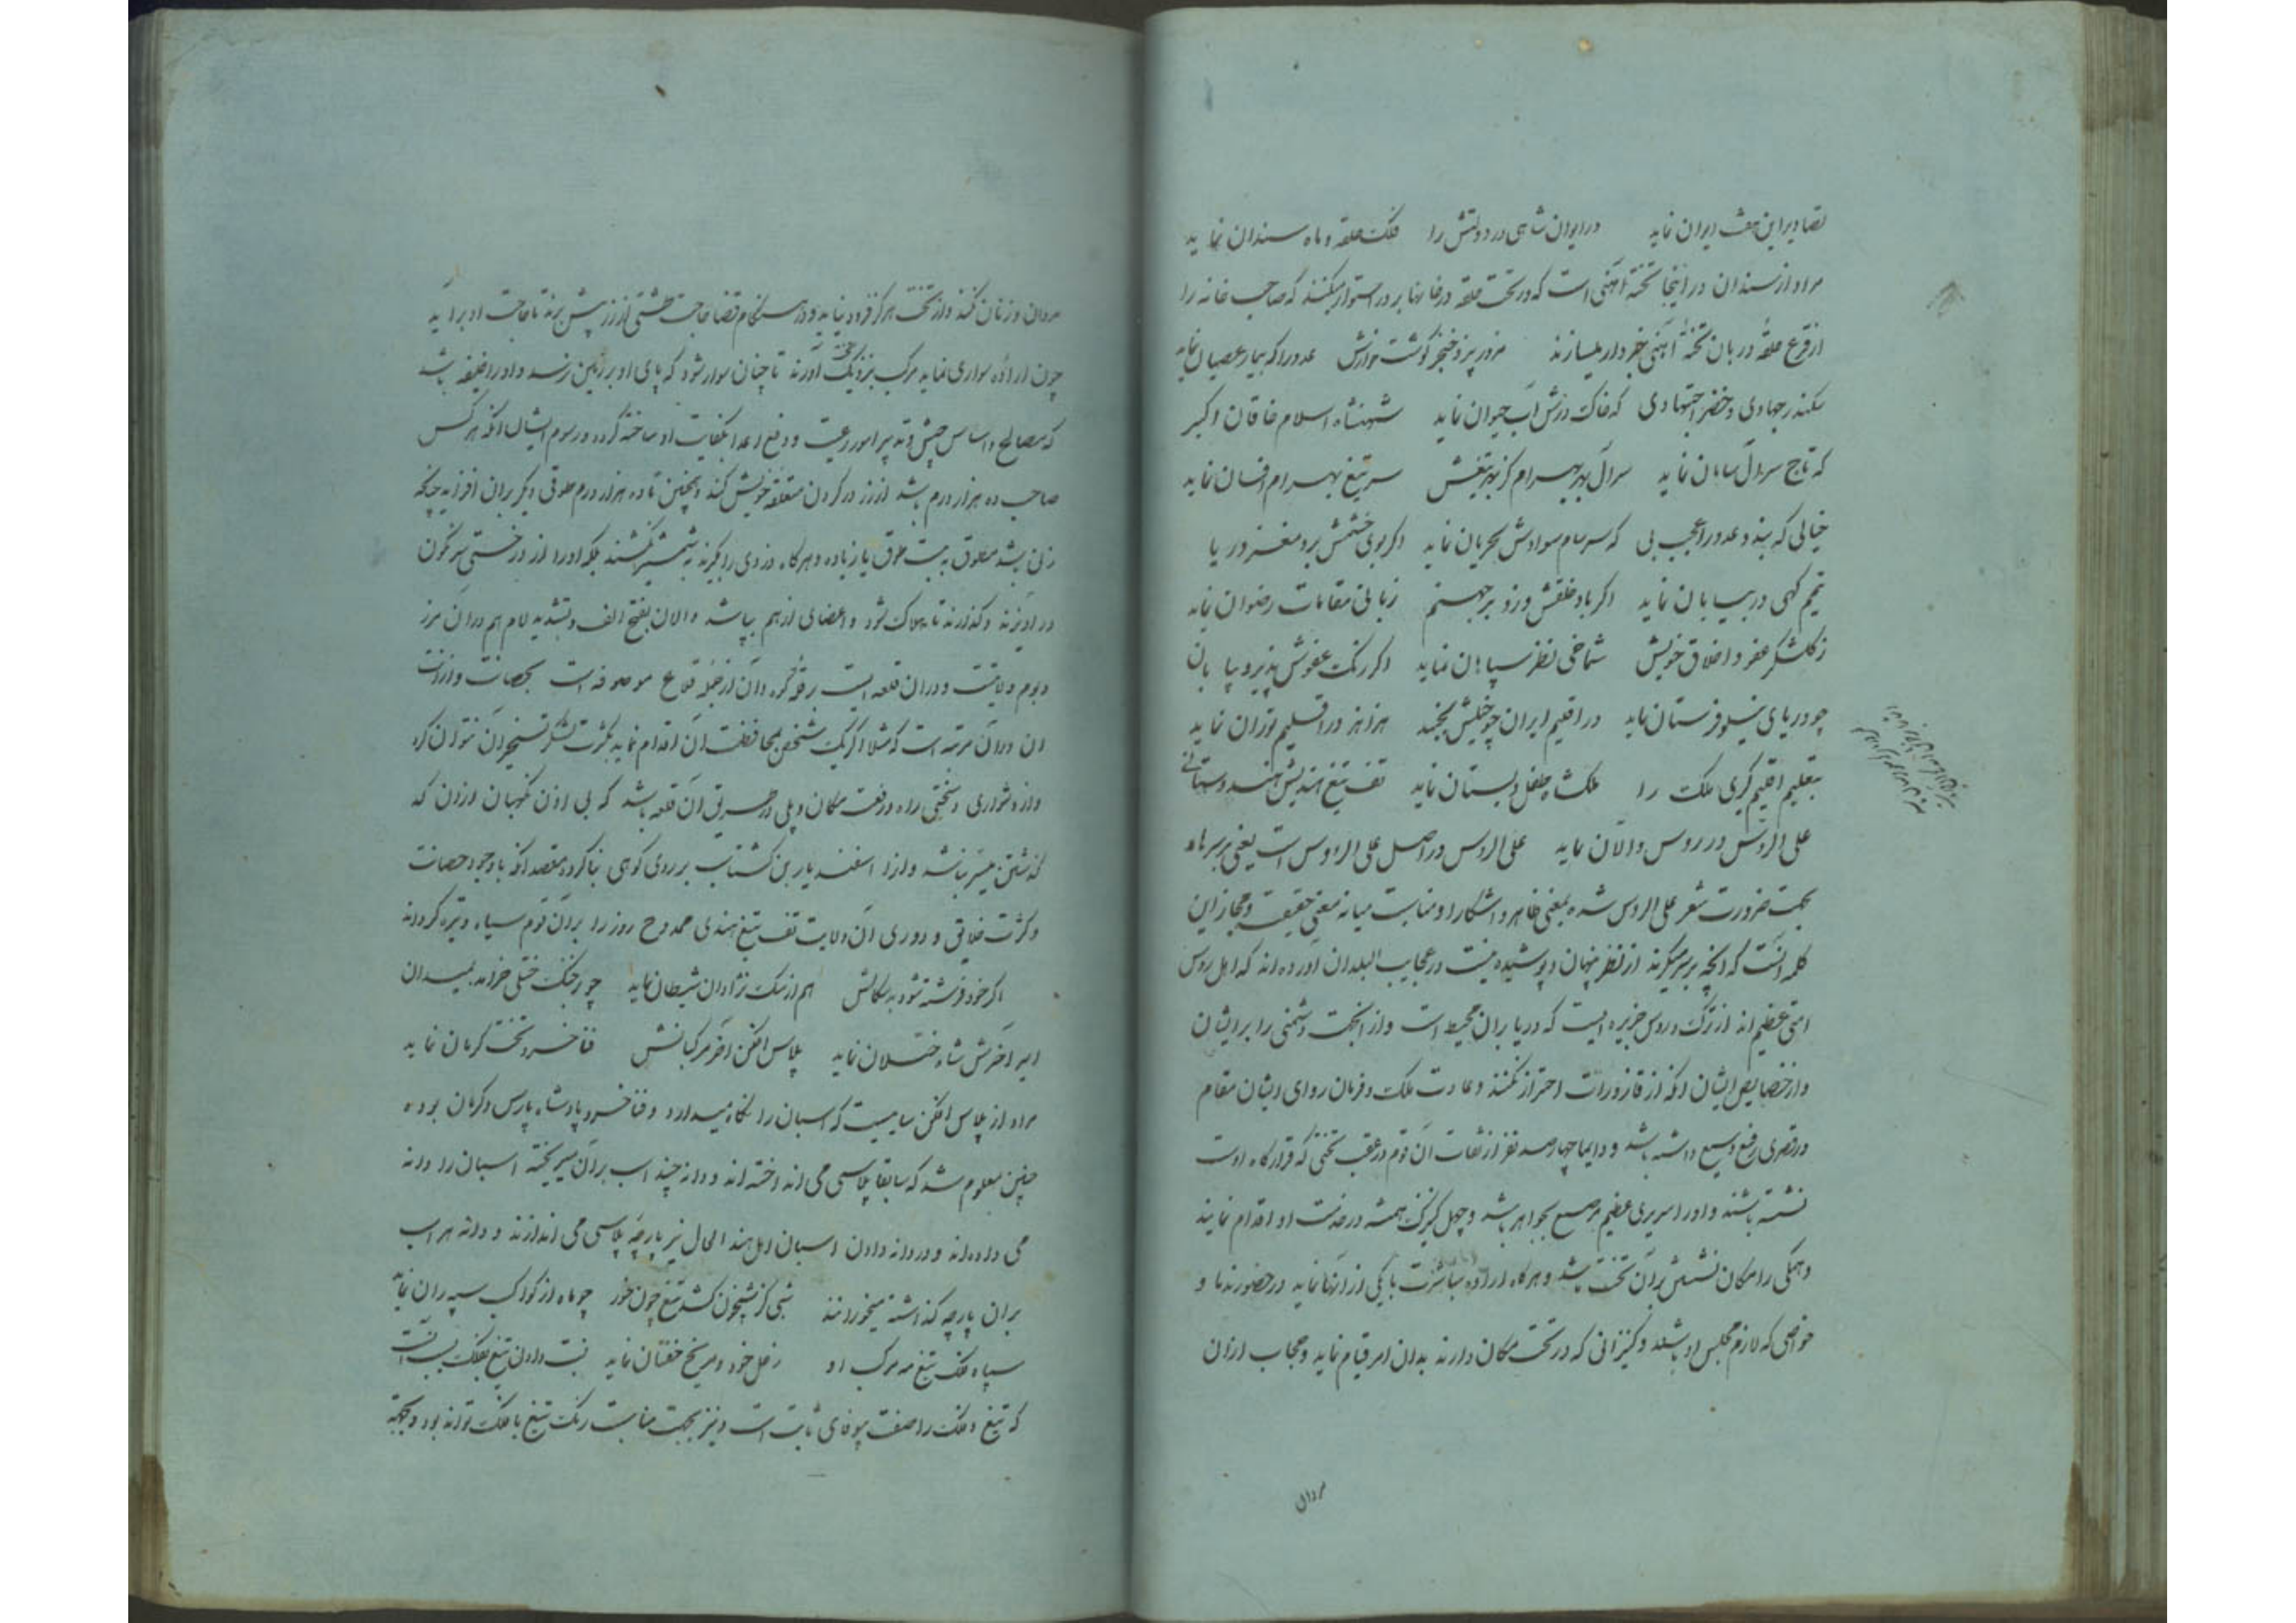 تصاویر این هفت ایران نماید در ایوان شاهی در دولتش را فلک حلقه و ماه سندان نماید
مراد از سندان در اینجا تخته آهنی است که در تحت حلقه درخانها بر در استوار میکنند که صاحب خانه را
از قرع حلقه در بان تخته آهنی خبردار میسازند خنجر گوشت عدو را که بیمار عصیان نماید
سکندر جهادی و خضر اجتهادی که خاک درش آب حیوان نماید شهنشاه اسلام خاقان اکبر
که تاج سر آل سامان نماید سر آل بهرام کز بهر تیغش سر تیغ بهرام افسان نماید
خیالی که بندد عدو را عجب بی که سرسام سوداش بحران نماید اگر بوی خشمش برد مغز دریا
تیمم گهی در بیابان نماید اگر باد خلقش وزد بر جهنم زبانی مقامات رضوان نماید
ز گلشکر عفو و اخلاق خویش شماخی نظیر سپاهان نماید اگر رنگ عفوش پذیرد بیابان
چو دریای نیلوفرستان نماید در اقلیم ایران چو خیلش بجنبد هزاهز در اقلیم توران نماید
بتعلیم اقلیم گیری ملک را ملکشاه طفل دبستان نماید تف تیغ هندیش هندوستانی
علی الروس در روس و الان نماید علی الروس در اصل علی الرؤوس است یعنی بر سرها و
بجهت ضرورت شعر علی الروس شده بمعنی ظاهر و آشکارا و مناسبت میانه معنی حقیقت و مجاز این
کلمه آنست که آنچه بر سر میگیرند از نظر پنهان و پوشیده نیست در عجایب البلدان آورده اند که اهل روس
امتی عظیم اند از ترک و روس جزیره ایست که دریا بران محیط است و از اینجهت دشمنی را بر ایشان
و از خصایص ایشان آنکه از قاذورات احتراز نکنند و عادت ملک و فرمان روای ایشان مقام
در قصری رفیع وسیع داشته باشد و دایما چهارصد نفر از ثقات آن قوم در عقب تختی که قرارگاه اوست
نشسته باشند و او را سریری عظیم مرصع بجواهر باشد و چهل کنیزک همیشه درخدمت او اقدام نمایند
و همگی را مکان نشستن بران تخت باشد و هرگاه اراده مباشرت با یکی از آنها نماید در حضور ندما و
خواصی که لازم مجلس او باشند و کنیزانی که در تخت مکان دارند بدان امر قیام نماید و حجاب ازان
مردان
مردان و زنان نکند و از تخت هرگز فرود نیاید و در هنگام قضا حاجت طشتی از زر پیش برند تا حاجت او برآید
چون اراده سواری نماید مرکب بنزدیک تخت آورند تا چنان سوار شود که پای او بر زمین نرسد و او را خلیفه باشد
که مصالح و اساس جیش و تدبیر امور رعیت و دفع اعدا بکفایت او ساخته گردد و رسوم ایشان آنکه هر کس
صاحب ده هزار درم باشد از زر در گردن متعلقه خویش کند و همچنین تا ده هزار درم طوقی دیگر بران افزاید چنانکه
زنی باشد مطوق به بیست طوق یا زیاده و هرگاه دزدی را بگیرند به شمشیر نکشند بلکه او را از درختی سرنگون
درآویزند و گذارند تا هلاک شود و اعضای او از هم بپاشد و الان بفتح الف و بتشدید لام هم دران مرز
و بوم ولایتست و دران قلعه ایست بر قلاع موصوفه است بحصانت و ارزانت
آن دران مرتبه است که مثلا اگر یک شخص بمحافظت آن اقدام نماید بکثرت لشکر تسخیر آن نتوان کرد
و از دشواری و سختی راه و رفعت مکان و پلی در طریق آن قلعه باشد که بی اذن نگهبان ازان گذ
گذشتن میسر نباشد و انرا اسفندیار بن گشتاسب بر روی کوهی بنا کرده مقصد آنکه باوجود حصانت
و کثرت خلایق و دوری آن ولایت تف تیغ هندی ممدوح روز را بران قوم سیاه و تیره گرداند
اگر خود فرشته شود بدسگالش هم از سگ نژادان شیطان نماید چو رخش خنلی خرامد بمیدان
امیر آخرش شاه ختلان نماید پلاس افکن آخر مرکبانش فنا خسرو تخت کرمان نماید
مراد از پلاس افکن سایسیست که اسبان را نگاه میدارد و فنا خسرو پادشاه پارس و کرمان بوده
چنین معلوم شد که سابقا پلاسی می انداخته اند و دانه چند اسب بران میریخته اسبان را دانه
می داده اند و در دانه دادن اسبان اهل هند الحال نیز پارچه پلاسی می اندازند و دانه هر اسب
بران پارچه گذاشته میخورانند شبی کز شبیخون کشد تیغ چون خور چو ماه از کواکب سپه ران نماید
سپاه ملک تیغ مه مرکب او زحل خود و مریخ خفتان نماید نسبت دادن تیغ بفلک بسبب آنست
که تیغ و فلک را صفت بیوفای ثابت است و نیز بجهت مناسبت رنگ تیغ با فلک تواند بود و بجهت